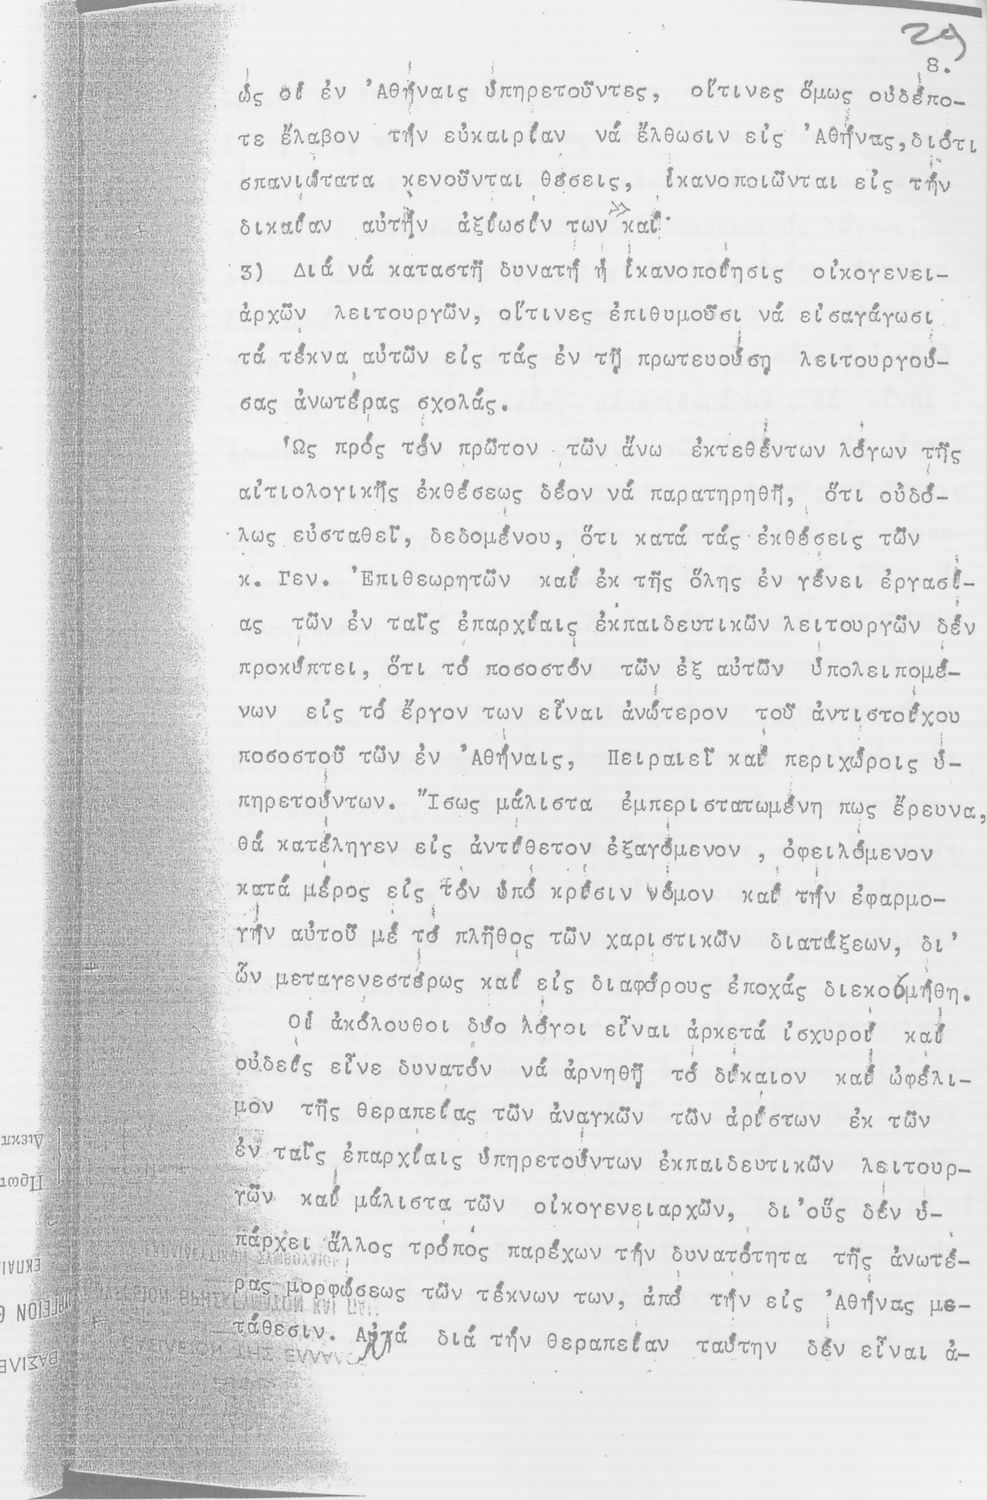 29
8.
ὡς οἱ ἐν Ἀθήναις ὑπηρετοῦντες, οἵτινες ὅμως οὐδέπο-
τε ἔλαβον τήν εὐκαιρίαν νά ἔλθωσιν εἰς Ἀθήνας, διότι
σπανιώτατα κενοῦνται θέσεις, ἱκανοποιῶνται εἰς τήν
δικαίαν αὐτήν ἀξίωσίν των » καί·
3) Διά νά καταστῇ δυνατή ἡ ἱκανοποίησις οἰκογενει-
ἀρχῶν λειτουργῶν, οἵτινες ἐπιθυμοῦσι νά εἰσαγάγωσι
τά τέκνα αὐτῶν εἰς τάς ἐν τῇ πρωτευούσῃ λειτουργού-
σας ἀνωτέρας σχολάς.
Ὡς πρός τόν πρῶτον τῶν ἄνω ἐκτεθέντων λόγων τῆς
αἰτιολογικῆς ἐκθέσεως δέον νά παρατηρηθῇ, ὅτι οὐδό-
λως εὐσταθεῖ, δεδομένου, ὅτι κατά τάς ἐκθέσεις τῶν
κ. Γεν. Ἐπιθεωρητῶν καί ἐκ τῆς ὅλης ἐν γένει ἐργασί-
ας τῶν ἐν ταῖς ἐπαρχίαις ἐκπαιδευτικῶν λειτουργῶν δέν
προκύπτει, ὅτι τό ποσοστόν τῶν ἐξ αὐτῶν ὑπολειπομέ-
νων εἰς τό ἔργον των εἶναι ἀνώτερον τοῦ ἀντιστοίχου
ποσοστοῦ τῶν ἐν Ἀθήναις, Πειραιεῖ καί περιχώροις ὑ-
πηρετούντων. Ἴσως μάλιστα ἐμπεριστατωμένη πως ἔρευνα,
θά κατέληγεν εἰς ἀντίθετον ἐξαγόμενον , ὀφειλόμενον
κατά μέρος εἰς τόν ὑπό κρίσιν νόμον καί τήν ἐφαρμο-
γήν αὐτοῦ μέ τό πλῆθος τῶν χαριστικῶν διατάξεων, δι'
ὧν μεταγενεστέρως καί εἰς διαφόρους ἐποχάς διεκοσμήθη.
Οἱ ἀκόλουθοι δύο λόγοι εἶναι ἀρκετά ἰσχυροί καί
οὐδείς εἶνε δυνατόν νά ἀρνηθῇ τό δίκαιον καί ὠφέλι-
μον τῆς θεραπείας τῶν ἀναγκῶν τῶν ἀρίστων ἐκ τῶν
ἐν ταῖς ἐπαρχίαις ὑπηρετούντων ἐκπαιδευτικῶν λειτουρ-
γῶν καί μάλιστα τῶν οἰκογενειαρχῶν, δι'οὕς δέν ὑ-
πάρχει ἄλλος τρόπος παρέχων τήν δυνατότητα τῆς ἀνωτέ-
ρας μορφώσεως τῶν τέκνων των, ἀπό τήν εἰς Ἀθήνας με-
τάθεσιν. Ἀλλά διά τήν θεραπείαν ταύτην δέν εἶναι ἀ-